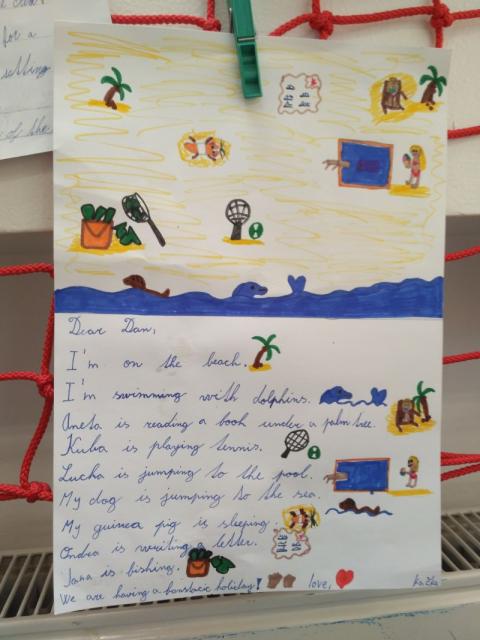 for a
Dear Dan,
I'm on the beach.
I'm swimming with dolphins.
Aneta is reading a book under a palm tree.
Kuba is playing tennis.
Lucka is jumping to the pool.
My dog is jumping to the sea.
My guinea pig is sleeping.
Ondra is writing a letter.
Jana is bishing.
We are having a banstastic holiday! love, Kačka